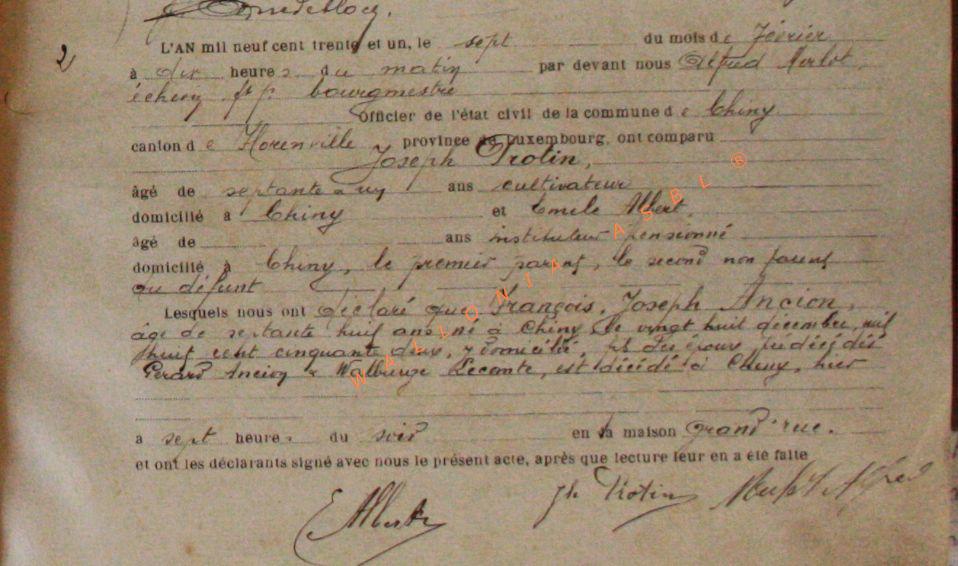 2
L'AN mil neuf cent trente et un, le sept du mois de Février
à dix heures du matin par devant nous Alfred Merlot,
échevin ff. bourgmestre
Officier de l'état civil de la commune de Chiny
canton de Florenville province de Luxembourg, ont comparu
Joseph Protin,
âgé de septante ans cultivateur
domicilié à Chiny et Emile Albert
âgé de ans instituteur pensionné
domicilié à Chiny, le premier parent, le second non parent
au défunt
Lesquels nous ont déclaré que François, Joseph Ancion,
âgé de septante huit ans né à Chiny, le vingt huit décembre mil
huit cent cinquante deux, y domicilié, fils des époux prédécédés
Gérard Ancion & Walburge Leconte, est décédé à Chiny, hier
à sept heures du soir en sa maison Grand'rue.
et ont les déclarants signé avec nous le présent acte, après que lecture leur en a été faite
E Albert Jh Protin
WALLONIA ASBL ®